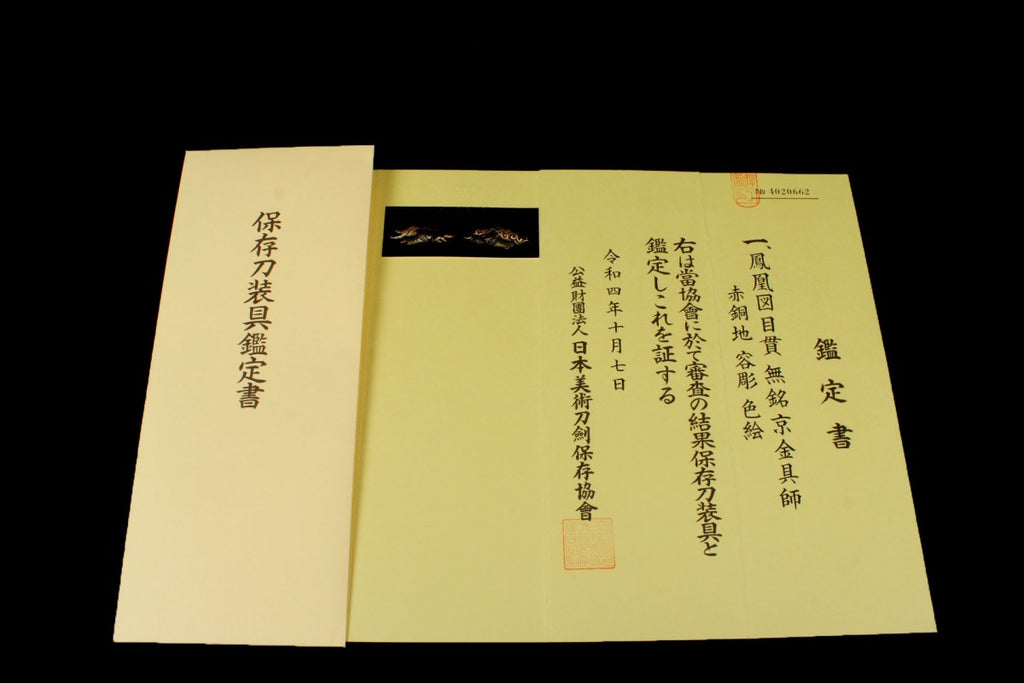 保存刀装具鑑定書
№ 4020662
鑑定書
一、鳳凰図目貫 無銘 京金具師
赤銅地 容彫 色絵
右は當協會に於て審査の結果保存刀装具と
鑑定しこれを証する
令和四年十月七日
公益財團法人 日本美術刀劍保存協會